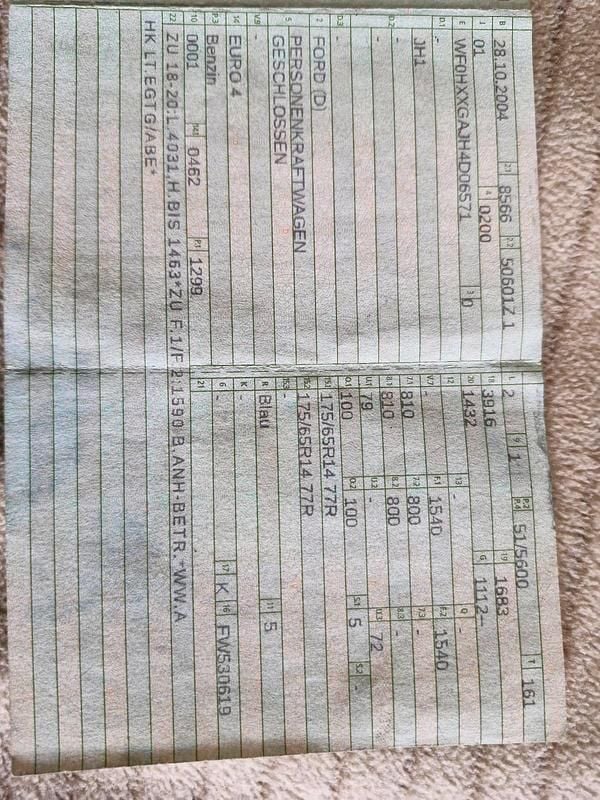 B 28.10.2004 2.1 8566 2.2 50601Z 1
J 01 4 0200
E WF0HXXGAJH4D06571 3 0
D.1 -
JH1
D.2 -
-
D.3 -
2 FORD (D)
5 PERSONENKRAFTWAGEN
GESCHLOSSEN
V.9 -
14 EURO 4
P.3 Benzin
10 0001 14.1 0462 P.1 1299
22 ZU 18-20:L.4031,H.BIS 1463*ZU F.1/F.2:1590 B.ANH-BETR.*WW.A
HK LT.EGTG/ABE*
L 2 9 1 P.2 P.4 51/5600 T 161
18 3916 19 1683
20 1432 G 1112--
12 - 13 - Q -
V.7 - F.1 1540 F.2 1540
7.1 810 7.2 800 7.3 -
8.1 810 8.2 800 8.3 -
U.1 79 U.2 - U.3 72
O.1 100 O.2 100 S.1 5 S.2 -
15.1 175/65R14 77R
15.2 175/65R14 77R
15.3 -
R Blau 11 5
K -
6 - 17 K 16 FW530619
21